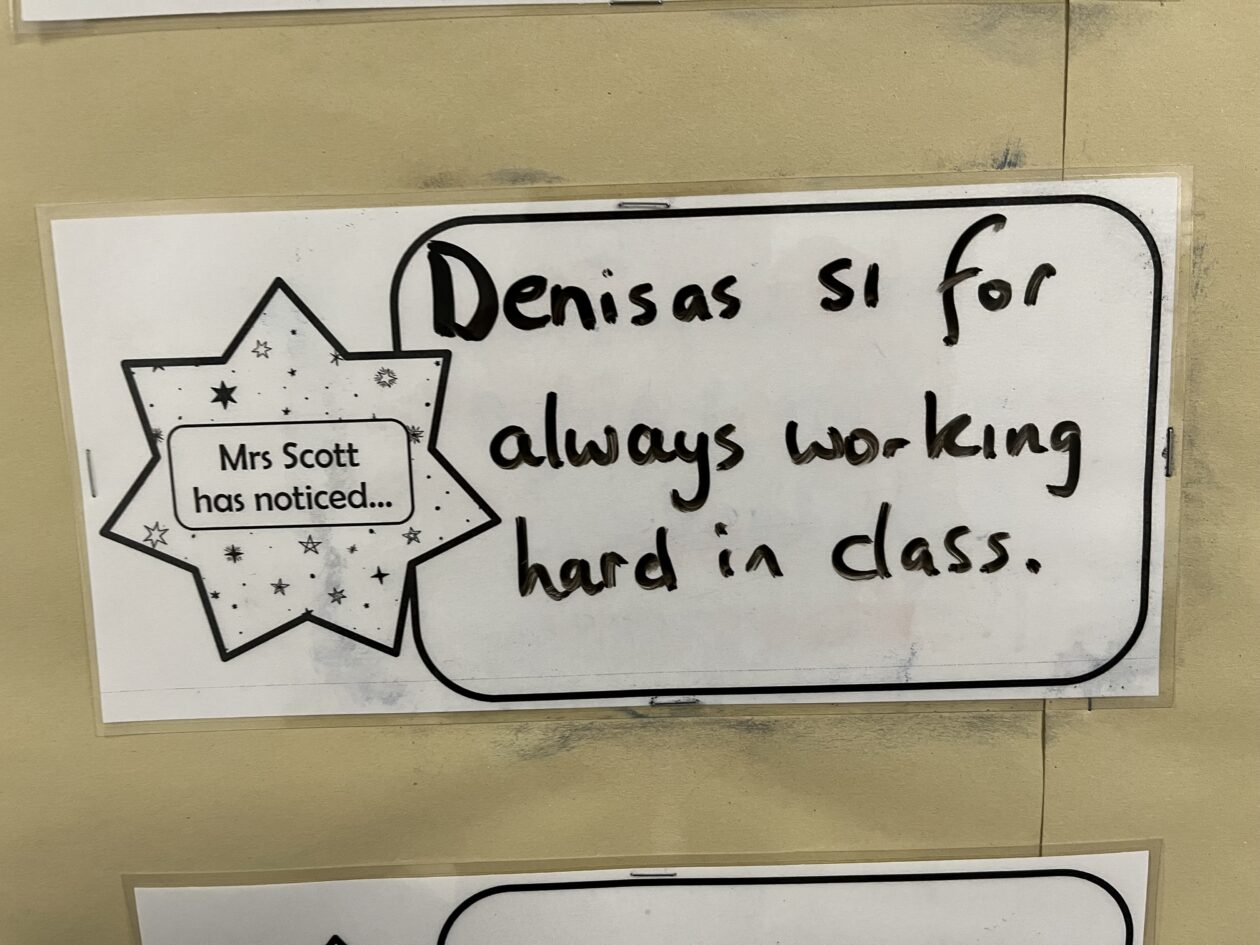 Mrs Scott
has noticed...
Denisas S1 for
always working
hard in class.